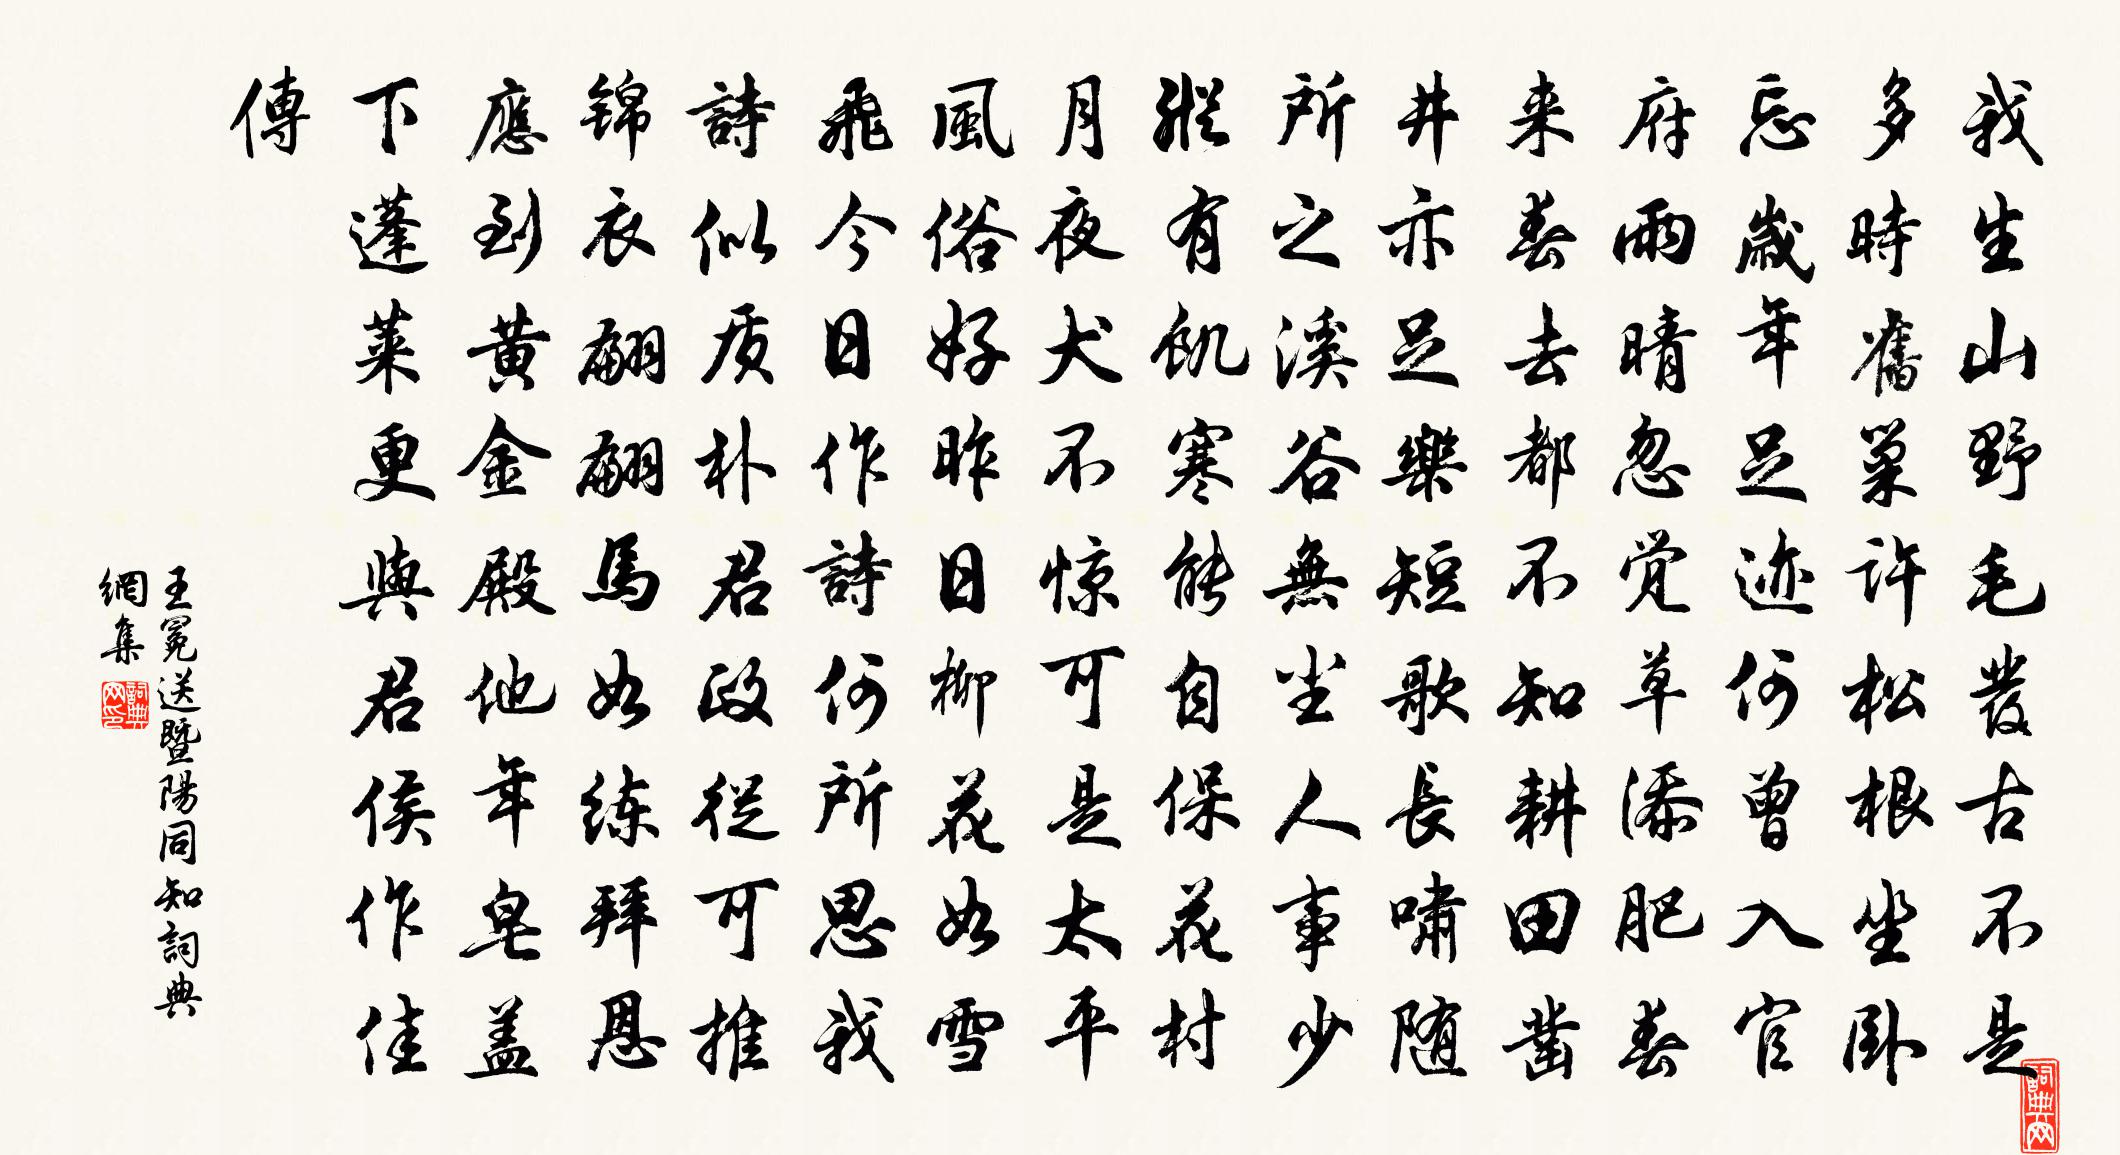 我生山野毛發古不是
多時舊巢許松根坐卧
忘歲年足迹何曾入官
府雨晴忽觉草添肥春
来春去都不知耕田凿
井亦足樂短歌長嘯随
所之溪谷無尘人事少
縱有飢寒能自保花村
月夜犬不惊可是太平
風俗好昨日柳花如雪
飛今日作詩何所思我
詩似质朴君政從可推
锦衣翩翩馬如练拜恩
應到黄金殿他年皂盖
下蓬莱更與君侯作佳
傳
王冕送暨陽同知詞典
網集
詞典网印
詞典网